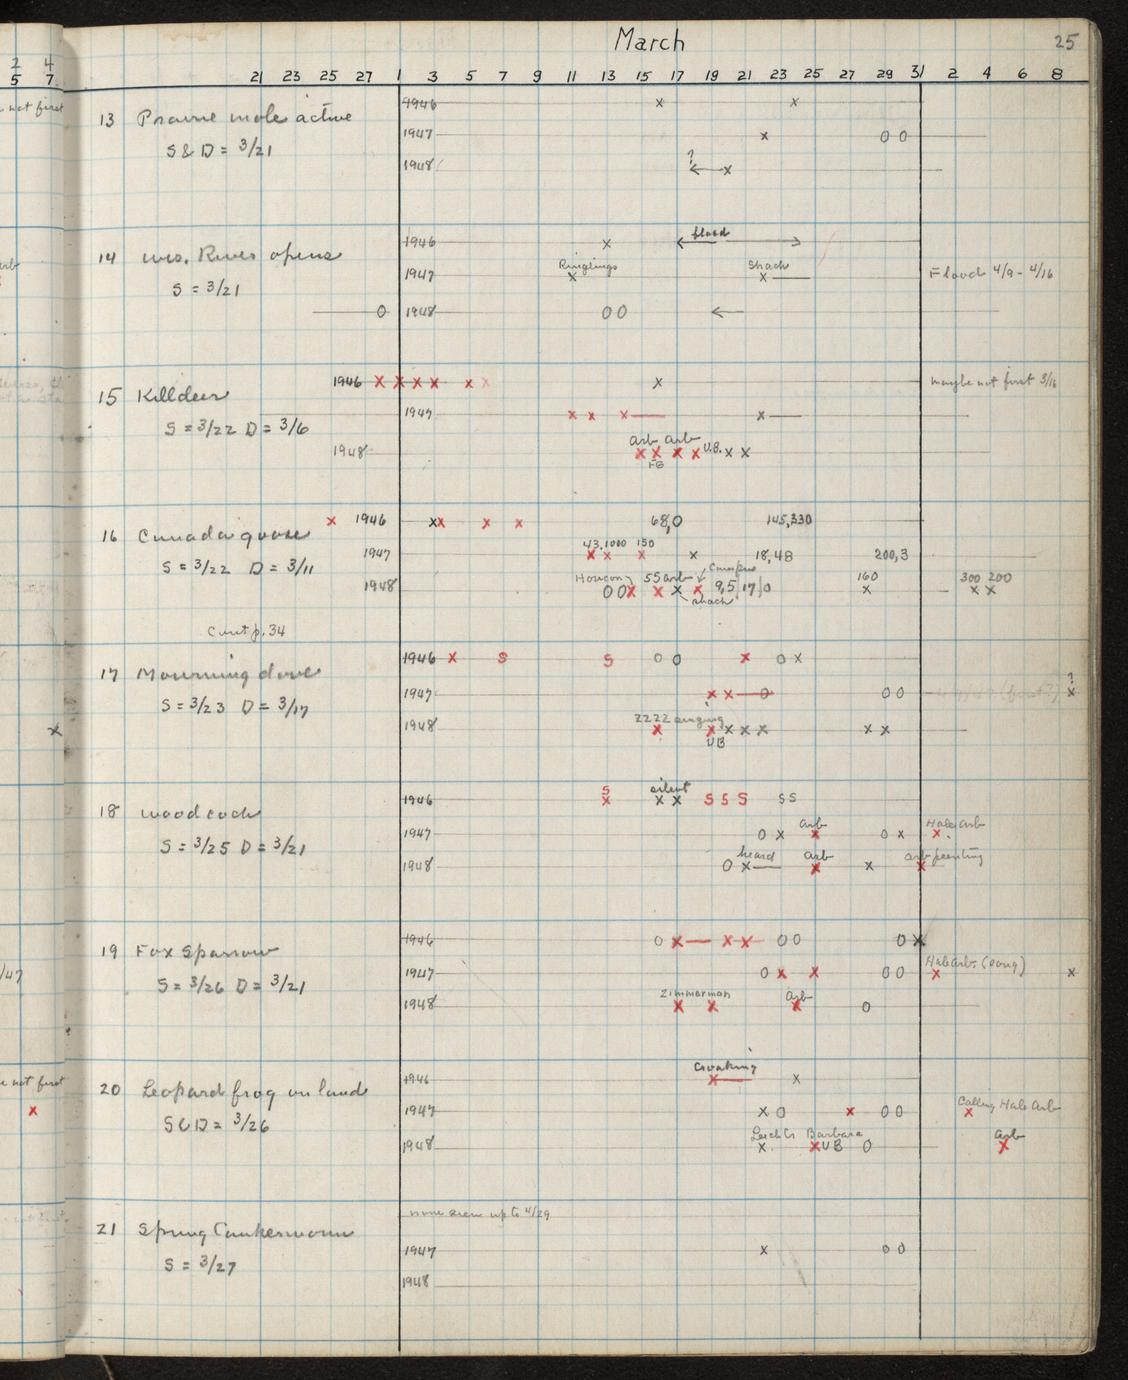 March 25
2 4
5 7 21 23 25 27 1 3 5 7 9 11 13 15 17 19 21 23 25 27 29 31 2 4 6 8
not first
13 Prairie mole active 1946 x x
S & D = 3/21 1947 x 0 0
? 
1948 ← x
14 Wis. River opens 1946 x flood
Ringlings Shack
S = 3/21 1947 x x Flood 4/9 - 4/16
0 1948 0 0 ←
15 Killdeer 1946 x x x x x x x maybe not first 3/16
S = 3/22 D = 3/6 1947 x x x x
arb arb U.B.
1948 x x x x x x
FG
16 Canada goose x 1946 x x x x 68,0 145,330
43,1000 150
S = 3/22 D = 3/11 1947 x x x x 18,48 200,3
Horicon 55 arb Campus 160 300 200
1948 0 0 x x x x 9,5 17 0 x x x
shack
Cont p. 34
17 Mourning dove 1946 x S S 0 0 x 0 x
?
S = 3/23 D = 3/17 1947 x x 0 0 0 x
2222 singing
1948 x x x x x x x
UB
18 Woodcock S silent
1946 x x x S S S S S
arb Hale, arb
S = 3/25 D = 3/21 1947 0 x x 0 x x
heard arb arb peenting
1948 0 x x x x
19 Fox Sparrow 1946 0 x x x 0 0 0 x
Hale arb. (song)
S = 3/26 D = 3/21 1947 0 x x 0 0 x x
Zimmerman Arb
1948 x x x 0
not first
20 Leopard frog on land Croaking
1946 x x
Calling Hale Arb
S & D = 3/26 1947 x 0 x 0 0 x
Barbara arb
1948 x x UB 0 x
21 Spring Cankerworm none seen up to 4/29
1947 x 0 0
S = 3/27 1948